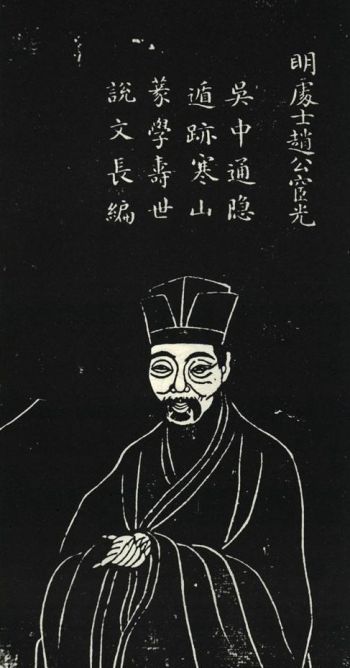 明處士趙公宧光
吳中通隐
遁跡寒山
篆學壽世
說文長編